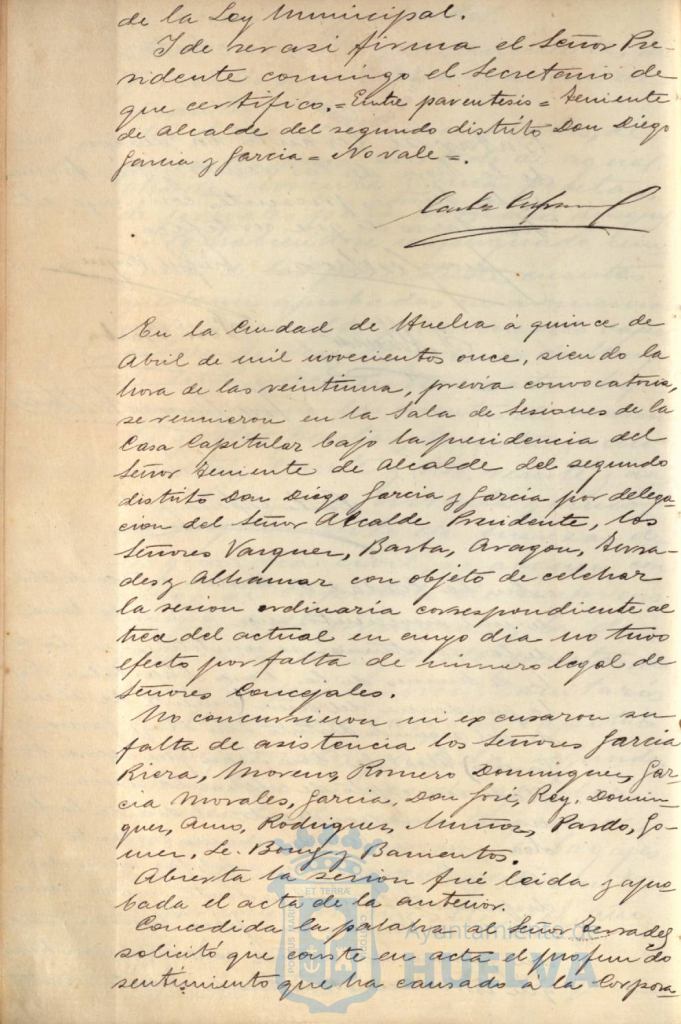 de la Ley Municipal.
Y de ser asi firma el Señor Pre-
sidente conmigo el Secretario de
que certifico.=Entre parentesis=Teniente
de Alcalde del segundo distrito Don Diego
Garcia y Garcia=No vale=.
En la Ciudad de Huelva á quince de
Abril de mil novecientos once, siendo la
hora de las veintiuna, previa convocatoria,
se reunieron en la Sala de Sesiones de la
Casa Capitular bajo la presidencia del
Señor Teniente de Alcalde del segundo
distrito Don Diego Garcia y Garcia por delega-
cion del Señor Alcalde Presidente, los
Señores Vazquez, Barba, Aragon, Terra-
des y Alhamar con objeto de celebrar
la sesion ordinaria correspondiente al
trece del actual en cuyo dia no tuvo
efecto por falta de número legal de
Señores Concejales.
No concurrieron ni excusaron su
falta de asistencia los Señores Garcia
Riera, Moreno, Romero Dominguez, Gar-
cia Morales, Garcia, Don José, Rey, Domin-
guez, Amo, Rodriguez, Muñoz, Pardo, Go-
mez, Le Bourg y Barrientos.
Abierta la sesion fué leida y apro-
bada el acta de la anterior.
Concedida la palabra al Señor Terrades
solicitó que conste en acta el profundo
sentimiento que ha causado a la Corpora-
PORTUS MARIS
ET TERRÆ
CUSTODIA
Ayuntamiento de
HUELVA